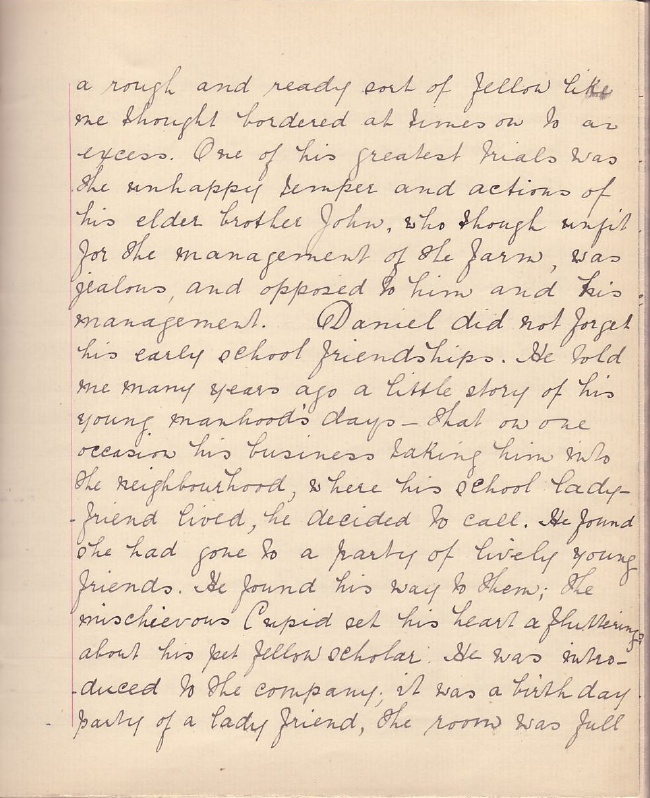 a rough and ready sort of fellow like
me thought bordered at times on to an
excess. One of his greatest trials was
the unhappy temper and actions of
his elder brother John, who though unfit
for the management of the farm, was
jealous, and opposed to him and his
management. Daniel did not forget
his early school friendships. He told
me many years ago a little story of his
young manhood's days - that on one
occasion his business taking him into
the neighbourhood, where his school lady-
-friend lived, he decided to call. He found
she had gone to a party of lively young
friends. He found his way to them; the
mischievous Cupid set his heart a fluttering
about his pet fellow scholar. He was intro-
-duced to the company; it was a birthday
party of a lady friend, the room was full